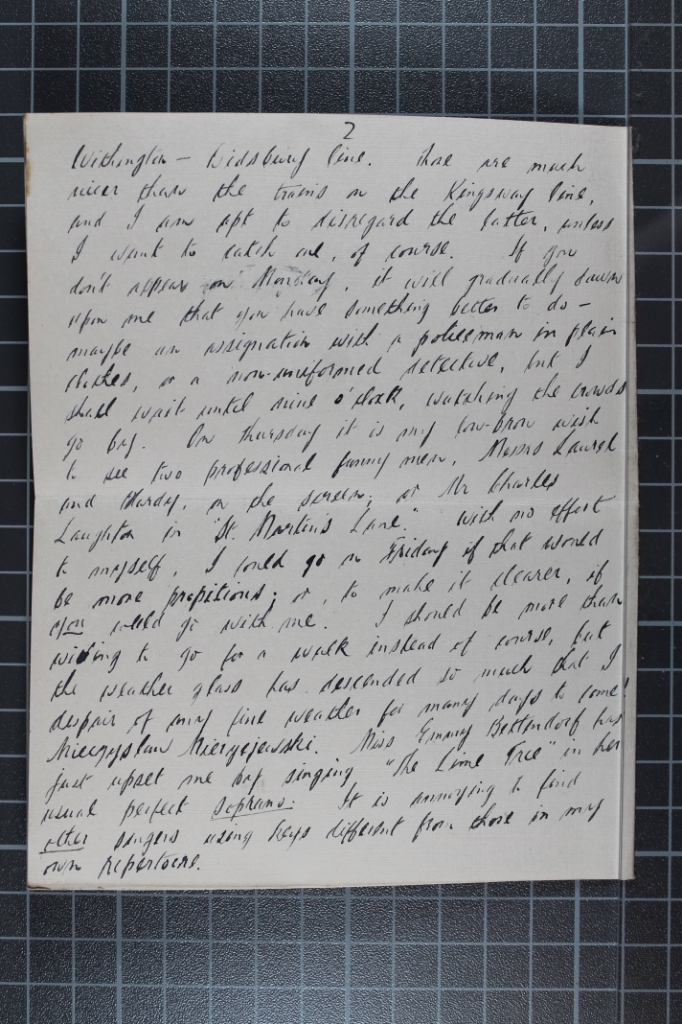 2
Withington – Didsbury line. Those are much
nicer than the trains on the Kingsway line,
and I am apt to disregard the latter, unless
I want to catch one, of course. If you
don't appear on Monday, it will gradually dawn
upon me that you have something better to do –
maybe an assignation with a policeman in plain
clothes, or a non-uniformed detective, but I
shall wait until nine o'clock, watching the crowds
go by. On Thursday it is my low-brow wish
to see two professional funny men, Messrs Laurel
and Hardy, on the screen; or Mr Charles
Laughton in "St. Martin's Lane." With no effort
to myself, I could go on Friday if that would
be more propitious; or, to make it clearer, if
you would go with me. I should be more than
willing to go for a walk instead of course, but
the weather glass has descended so much that I
despair of any fine weather for many days to come!
Miss Emmy Bettendorf has
just upset me by singing "The Lime Tree" in her
usual perfect soprano. It is annoying to find
other singers using keys different from those in my
own repertoire.